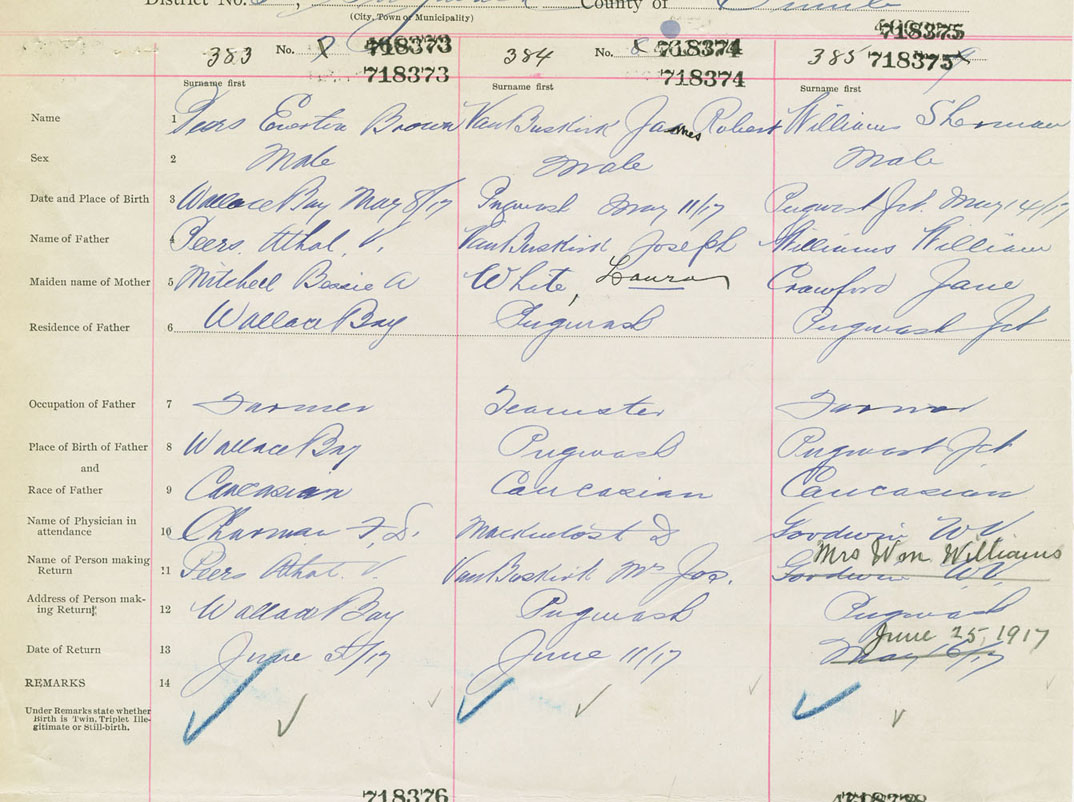 District No. County of
(City, Town or Municipality)
718375
383 No. 718373 384 No. 8 718374 385 718375
718373 718374
Surname first Surname first Surname first
Name 1 Peers Everton Brown VanBuskirk James Robert Williams Sherman
Sex 2 Male Male Male
Date and Place of Birth 3 Wallace Bay May 8/17 Pugwash May 11/17 Pugwash Jct. May 14/17
Name of Father 4 Peers, Athol. V. VanBuskirk Joseph Williams William
Maiden name of Mother 5 Mitchell Bessie A White, Laura Crawford Jane
Residence of Father 6 Wallace Bay Pugwash Pugwash Jct
Occupation of Father 7 Farmer Teamster Farmer
Place of Birth of Father 8 Wallace Bay Pugwash Pugwash Jct
and
Race of Father 9 Caucasian Caucasian Caucasian
Name of Physician in
attendance 10 Charman F. D. Mackintosh D Goodwin WV
Mrs Wm Williams
Name of Person making
Return 11 Peers Athol. V. VanBuskirk Mrs Jos. Goodwin W.V.
Address of Person mak-
ing Return 12 Wallace Bay Pugwash Pugwash
June 25, 1917
Date of Return 13 June /17 June 11/17 May 16/17
REMARKS 14
Under Remarks state whether
Birth is Twin, Triplet Ille-
gitimate or Still-birth.
718376